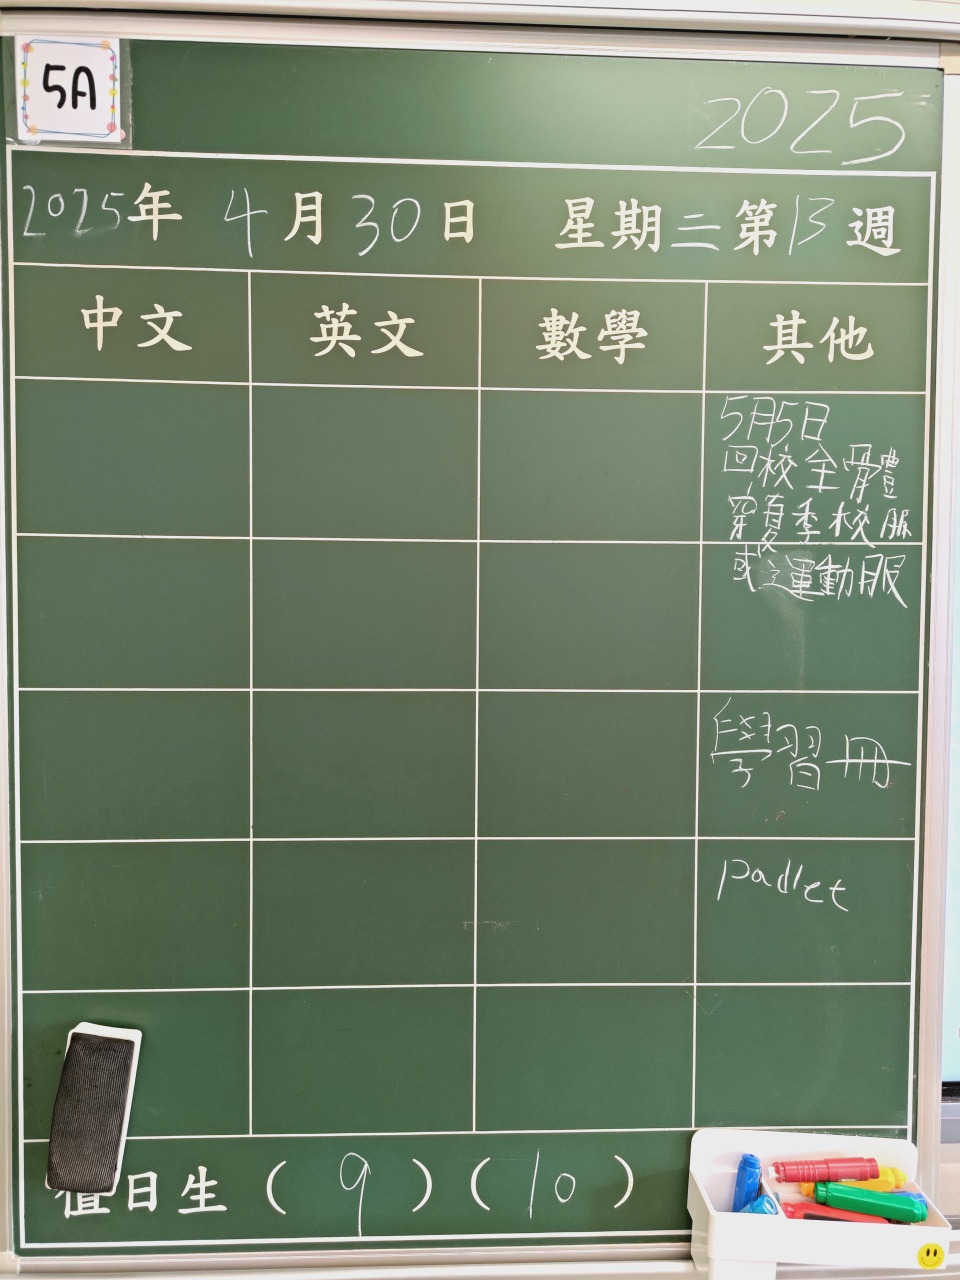 5A
2025
2025年 4月30日 星期三第13週
中文 英文 數學 其他
5月5日
回校全體
穿夏季校服
或運動服
學習冊
padlet
值日生 ( 9 ) ( 10 )